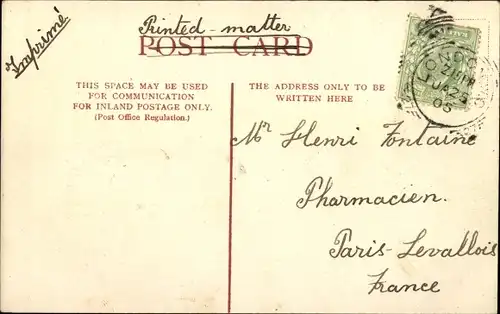 Imprimé
Printed - matter
POST CARD
THIS SPACE MAY BE USED
FOR COMMUNICATION
FOR INLAND POSTAGE ONLY.
(Post Office Regulation.)
THE ADDRESS ONLY TO BE
WRITTEN HERE
Mr Henri Fontaine
Pharmacien.
Paris-Levallois
France